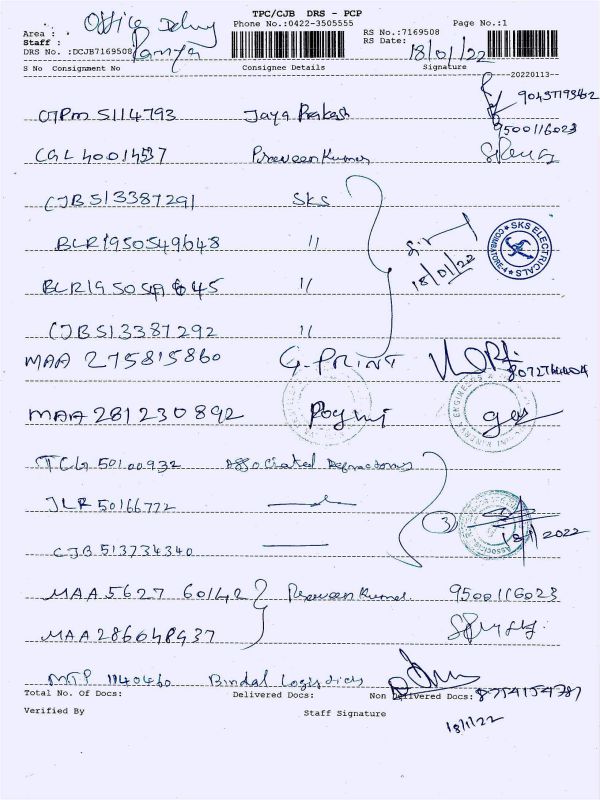 TPC/CJB DRS - PCP
Office Delivery
Phone No.:0422-3505555
Page No.:1
Area :
RS No.:7169508
Staff : Ramya
RS Date: 18/01/22
DRS No. :DCJB7169508
S No Consignment No Consignee Details Signature
20220113
OTPM 5114793 Jaya Prakash
9500116023
CGL 40014537 Praveen Kumar
CJB 513387291 SKS
BLR1950549648 11
18/01/22
SKS ELECTRICALS
COIMBATORE-4
BLR1950549645 11
CJB 513387292 11
MAA 275815860 G-PRINT
MAA 281230892
TCG 50100932 Associated Refractories
JLR 50166772
3
18/1/2022
CJB 513734340
MAA 5627 60142 Praveen Kumar 9500116023
MAA 286648937
MTP 1140460 Bindal Logistics
Total No. Of Docs: Delivered Docs: Non Delivered Docs: 8754154787
Verified By Staff Signature
18/1/22